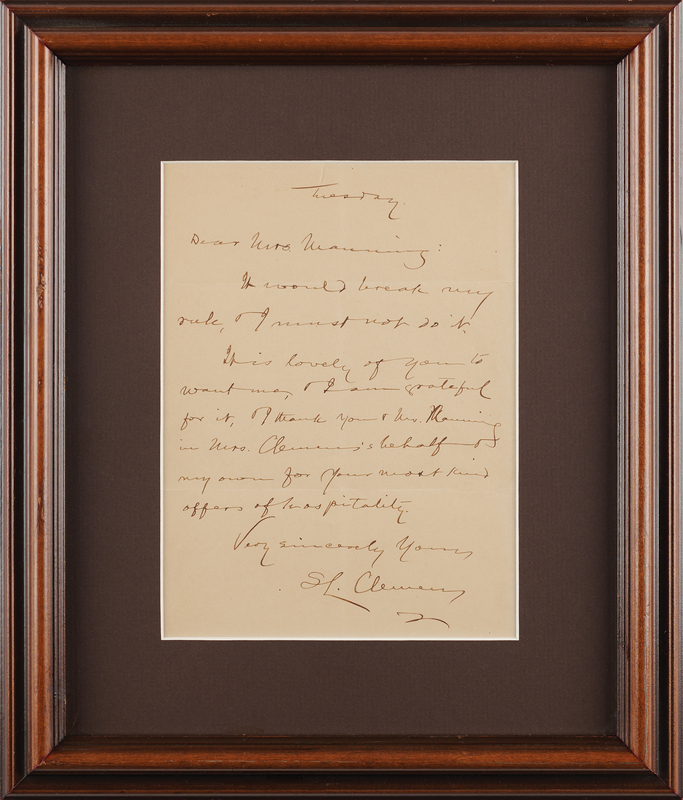 Tuesday.
Dear Mrs. Manning:
It would break my
rule, & I must not do it.
It is lovely of you to
want me, & I am grateful
for it, & I thank you & Mr. Manning
in Mrs. Clemens's behalf &
my own for your most kind
offers of hospitality.
Very sincerely Yours,
SL. Clemens